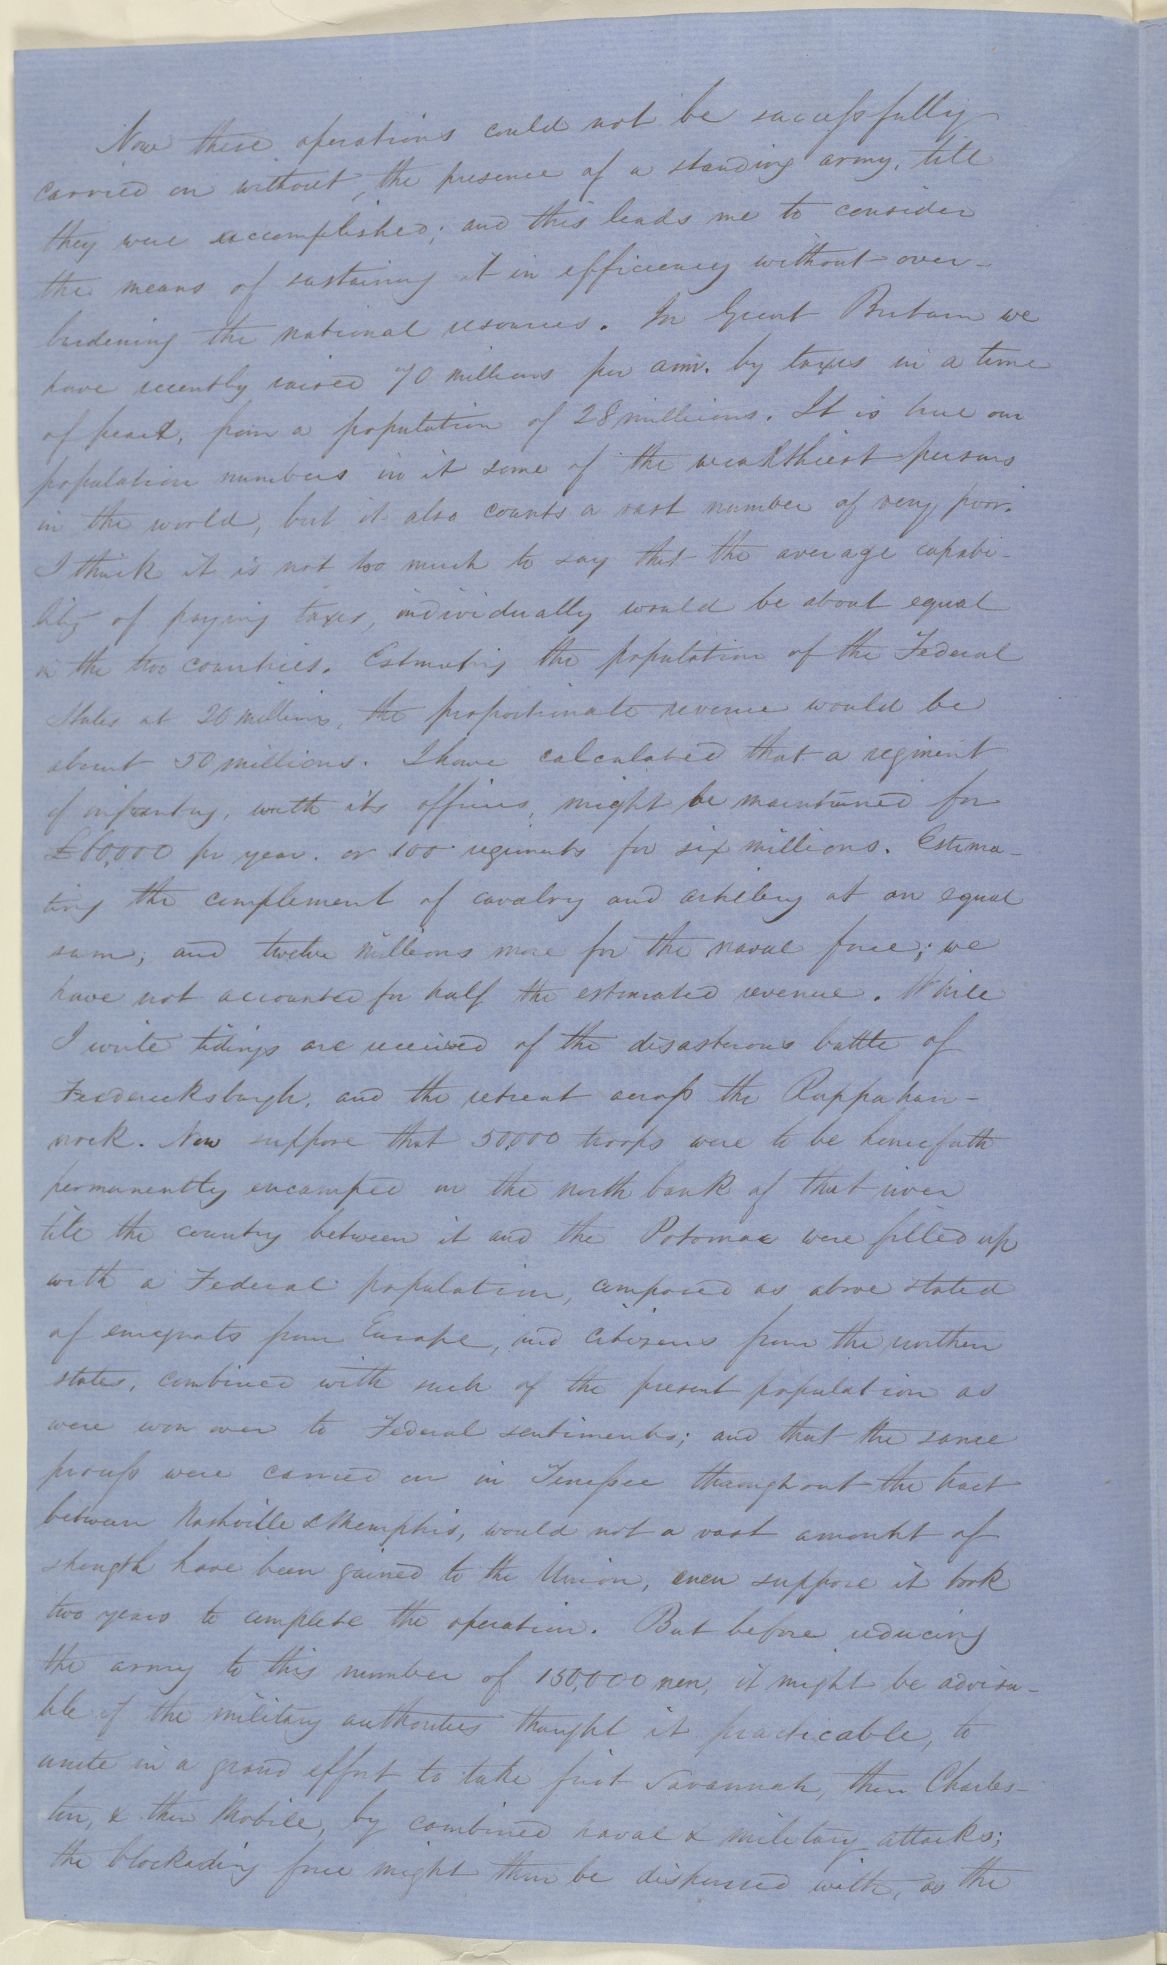 Now these operations could not be successfully
carried on without the presence of a standing army, till
they were accomplished; and this leads me to consider
the means of sustaining it in efficiency without over-
burdening the national resources. In Great Britain we
have recently raised 70 millions per ann. by taxes in a time
of peace, from a population of 28 millions. It is true our
population numbers in it some of the wealthiest persons
in the world, but it also counts a vast number of very poor.
I think it is not too much to say that the average capabi-
lity of paying taxes, individually would be about equal
in the two countries. Estimating the population of the Federal
States at 20 millions, the proportionate revenue would be
about 50 millions. I have calculated that a regiment
of infantry, with its officers, might be maintained for
£60,000 pr year. or 100 regiments for six millions. Estima-
ting the complement of cavalry and artillery at an equal
sum; and twelve millions more for the naval force; we
have not accounted for half the estimated revenue. While
I write tidings are received of the disasterous battle of
Fredericksburgh, and the retreat across the Rappahan-
nock. Now suppose that 50,000 troops were to be henceforth
permanently encamped on the north bank of that river
till the country between it and the Potomac were filled up
with a Federal population, composed as above stated
of emigrats from Europe, and citizens from the northern
states, combined with such of the present population as
were won over to Federal sentiments; and that the same
process were carried on in Tenessee throughout the tract
between Nashville & Memphis, would not a vast amount of
strength have been gained to the Union, even suppose it took
two years to complete the operation. But before reducing
the army to this number of 150,000 men, it might be advisa-
ble if the military authorities thought it practicable, to
unite in a grand effort to take first Savannah, then Charles-
ton, & then Mobile, by combined naval & military attacks;
the blockading force might then be dispensed with, as the